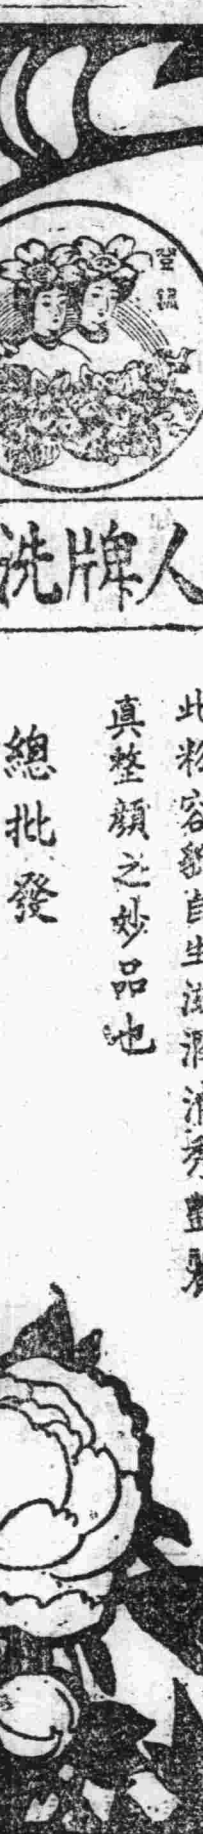 登錄
人牌洗
此粉容貌自生滋潤清秀豔麗
真整顏之妙品也
總批發